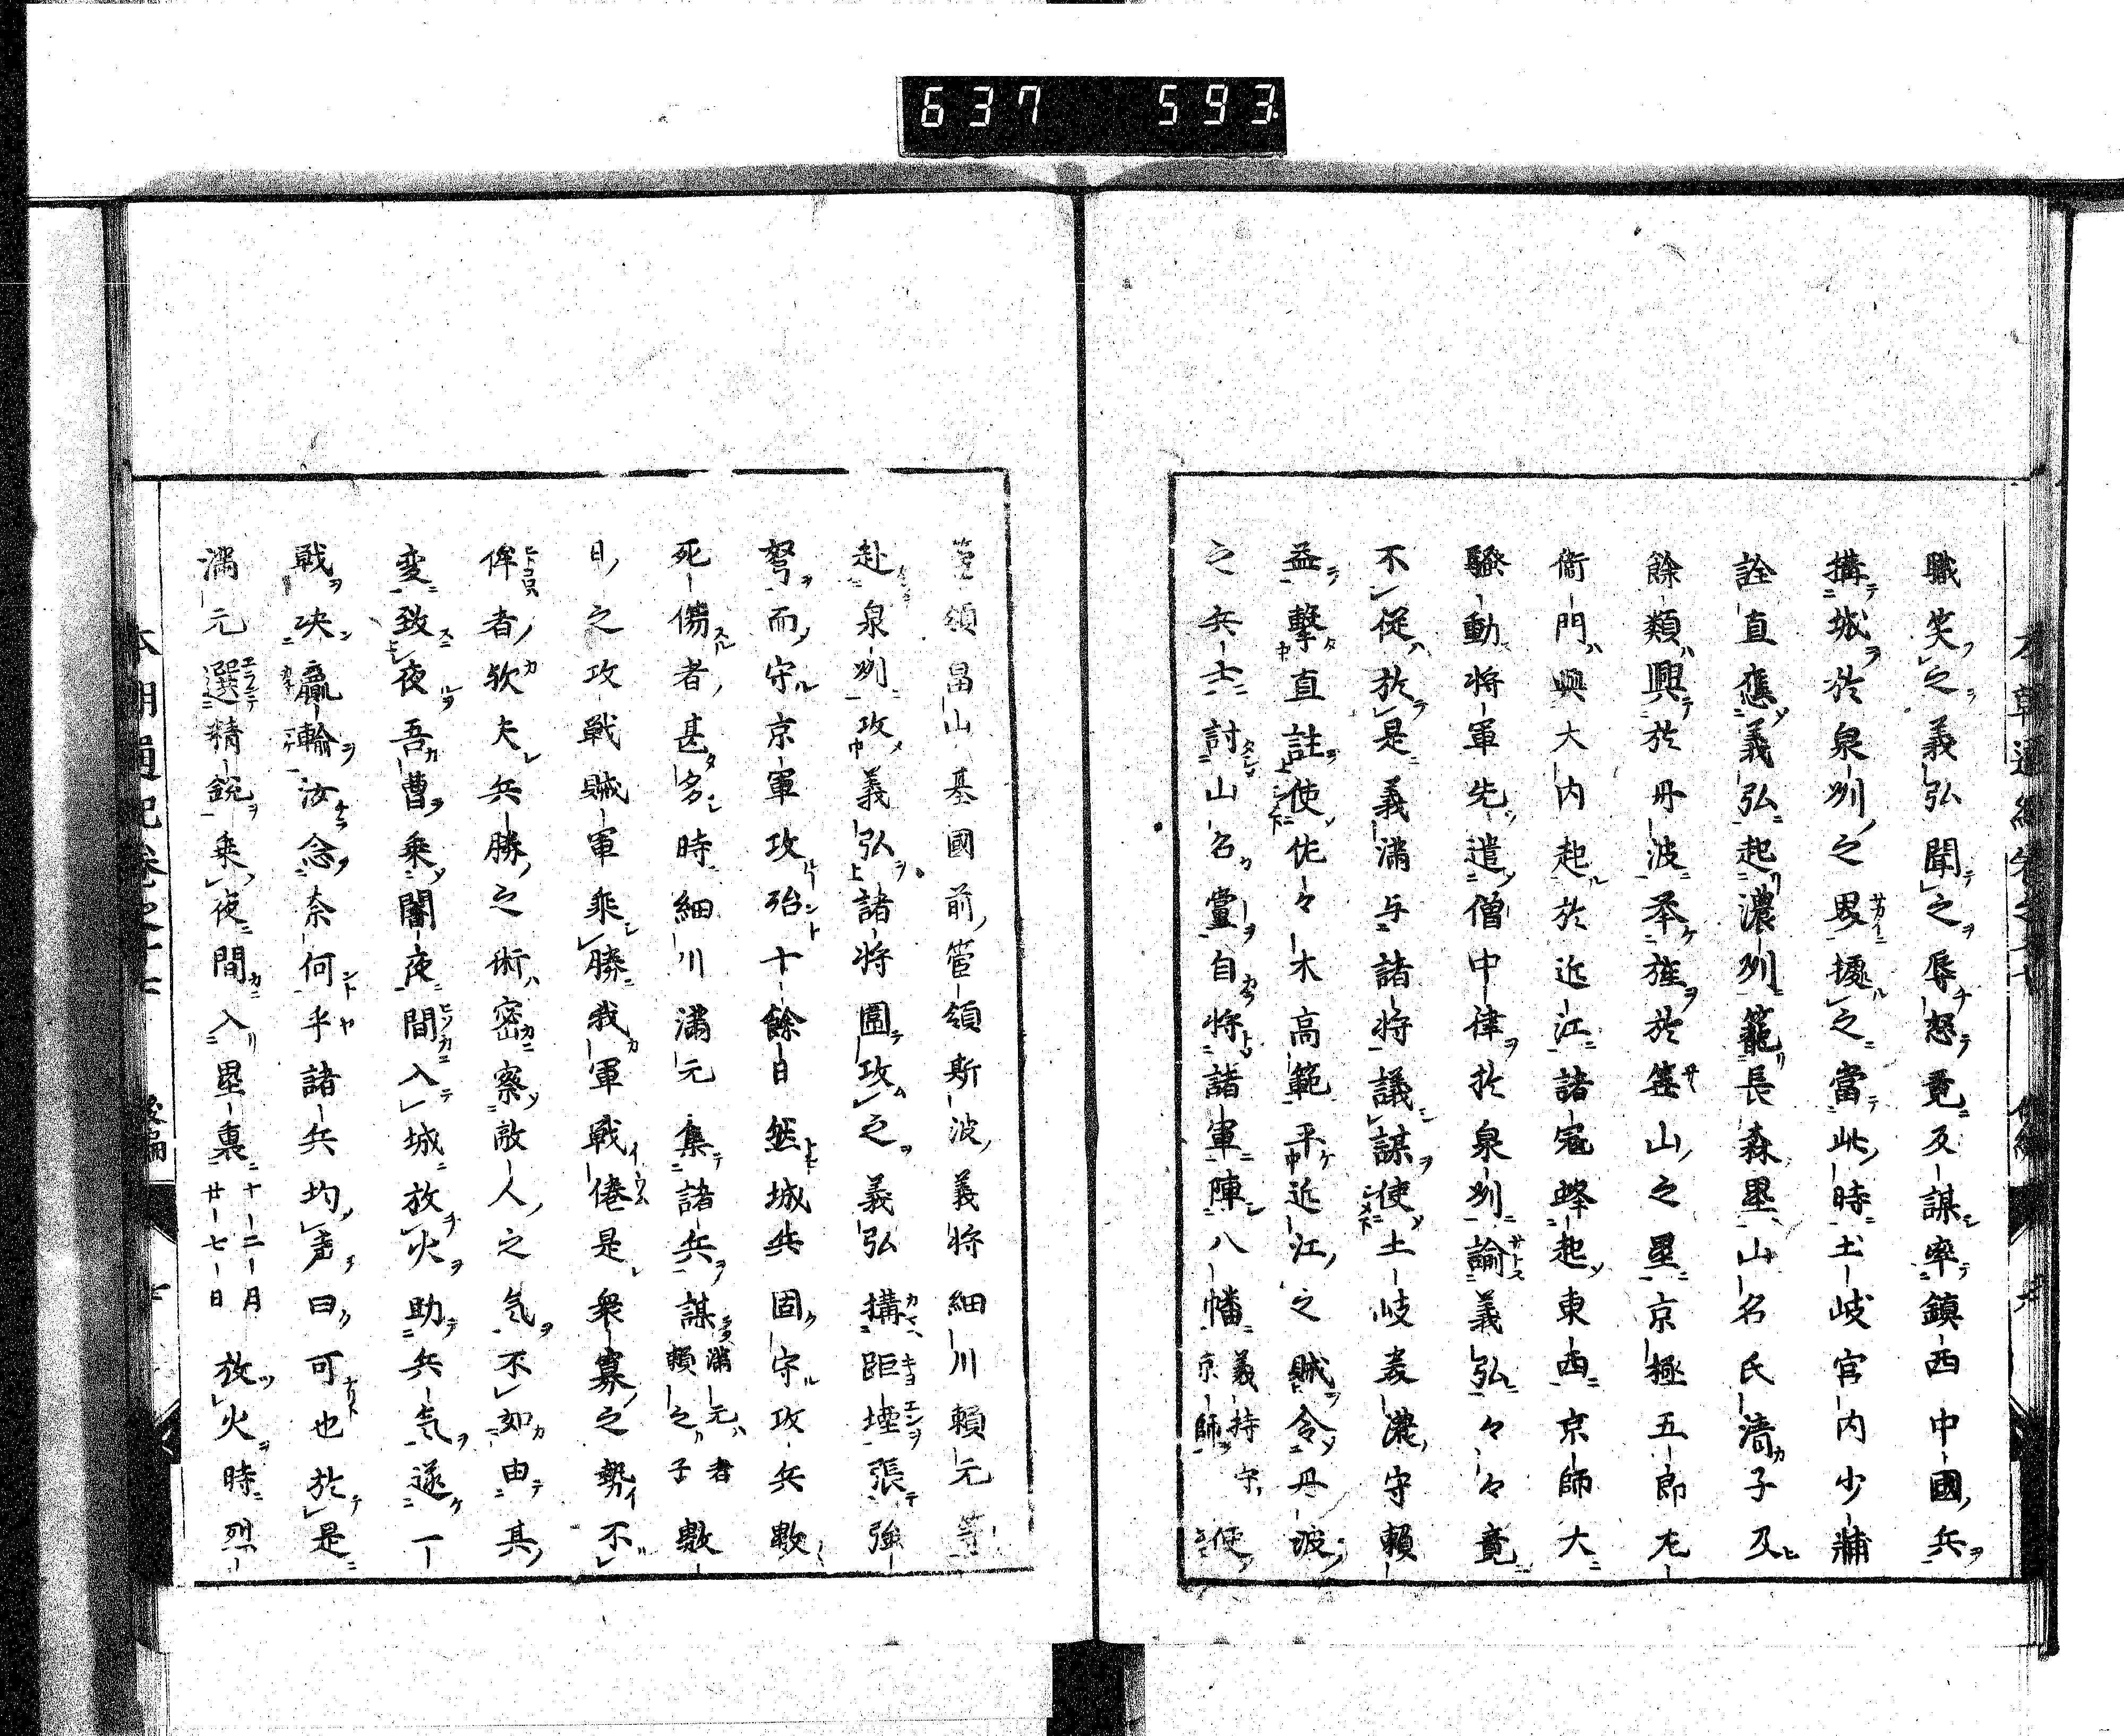 637 593
職笑之義弘聞之辱怒竟及謀率鎮西中國兵
搆城於泉州之界壌之當此時土岐宮内少輔
詮直應義弘起濃州篭長森塁山名氏清子及
餘類興於丹波挙旌於山之星京極五郎左
衛門興大内起於近江諸冠蜂起東西京師大
騒動将軍先遣僧中律於泉州諭義弘々々竟
不従於是義満与諸将議謀使土岐美濃守頼
益撃直詮使佐々木高範平近江之賊令丹波
之兵士討山名黨自将諸軍陣八幡義持守京師使
管領畠山基國前管領斯波義将細川頼元等
赴泉州攻義弘諸将圍攻之義弘搆距堙張強
弩而守京軍攻殆十餘日然城兵固守攻兵數
死傷者甚多時細川満元集諸兵謀満元者頼之子數
日之攻戦賊軍乗勝我軍戦倦是衆寡之勢不
侔者欤夫兵勝之術密察敵人之気不如由其
変致夜吾曹乗闇夜間入城放火助兵気遂一
戦决贏輸汝念奈何乎諸兵均声曰可也於是
満元選精鋭乗夜間入塁裏十二月廿七日放火時烈
本朝通紀巻之十七 後編